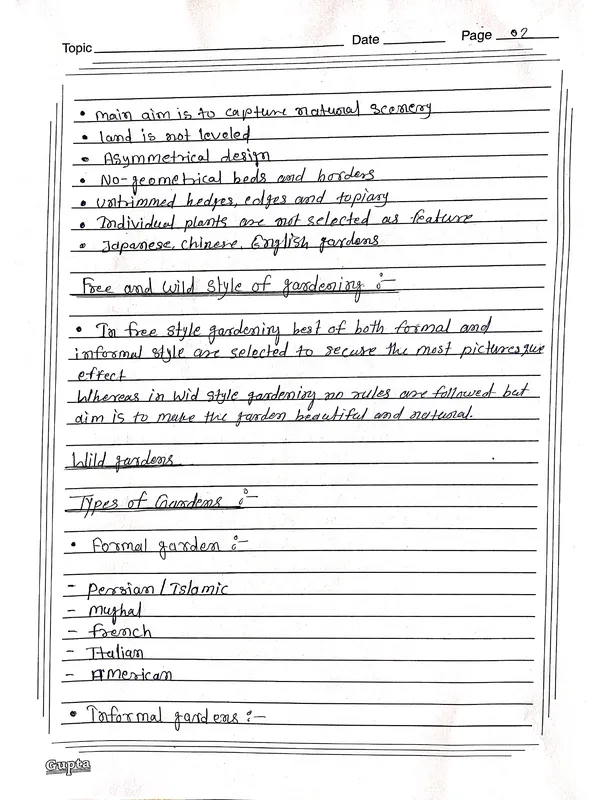 Topic Date Page 02
• main aim is to capture natural scenery
• land is not leveled
• Asymmetrical design
• No-geometrical beds and borders
• untrimmed hedges, edges and topiary
• Individual plants are not selected as feature
• Japanese, Chinese, English gardens
Free and wild style of gardening :-
• In free style gardening best of both formal and
informal style are selected to secure the most picturesque
effect
Whereas in wid style gardening no rules are followed but
aim is to make the garden beautiful and natural.
Wild gardens
Types of Gardens :-
• Formal garden :-
- Persian / Islamic
- Mughal
- French
- Italian
- American
• Informal gardens :-
Gupta